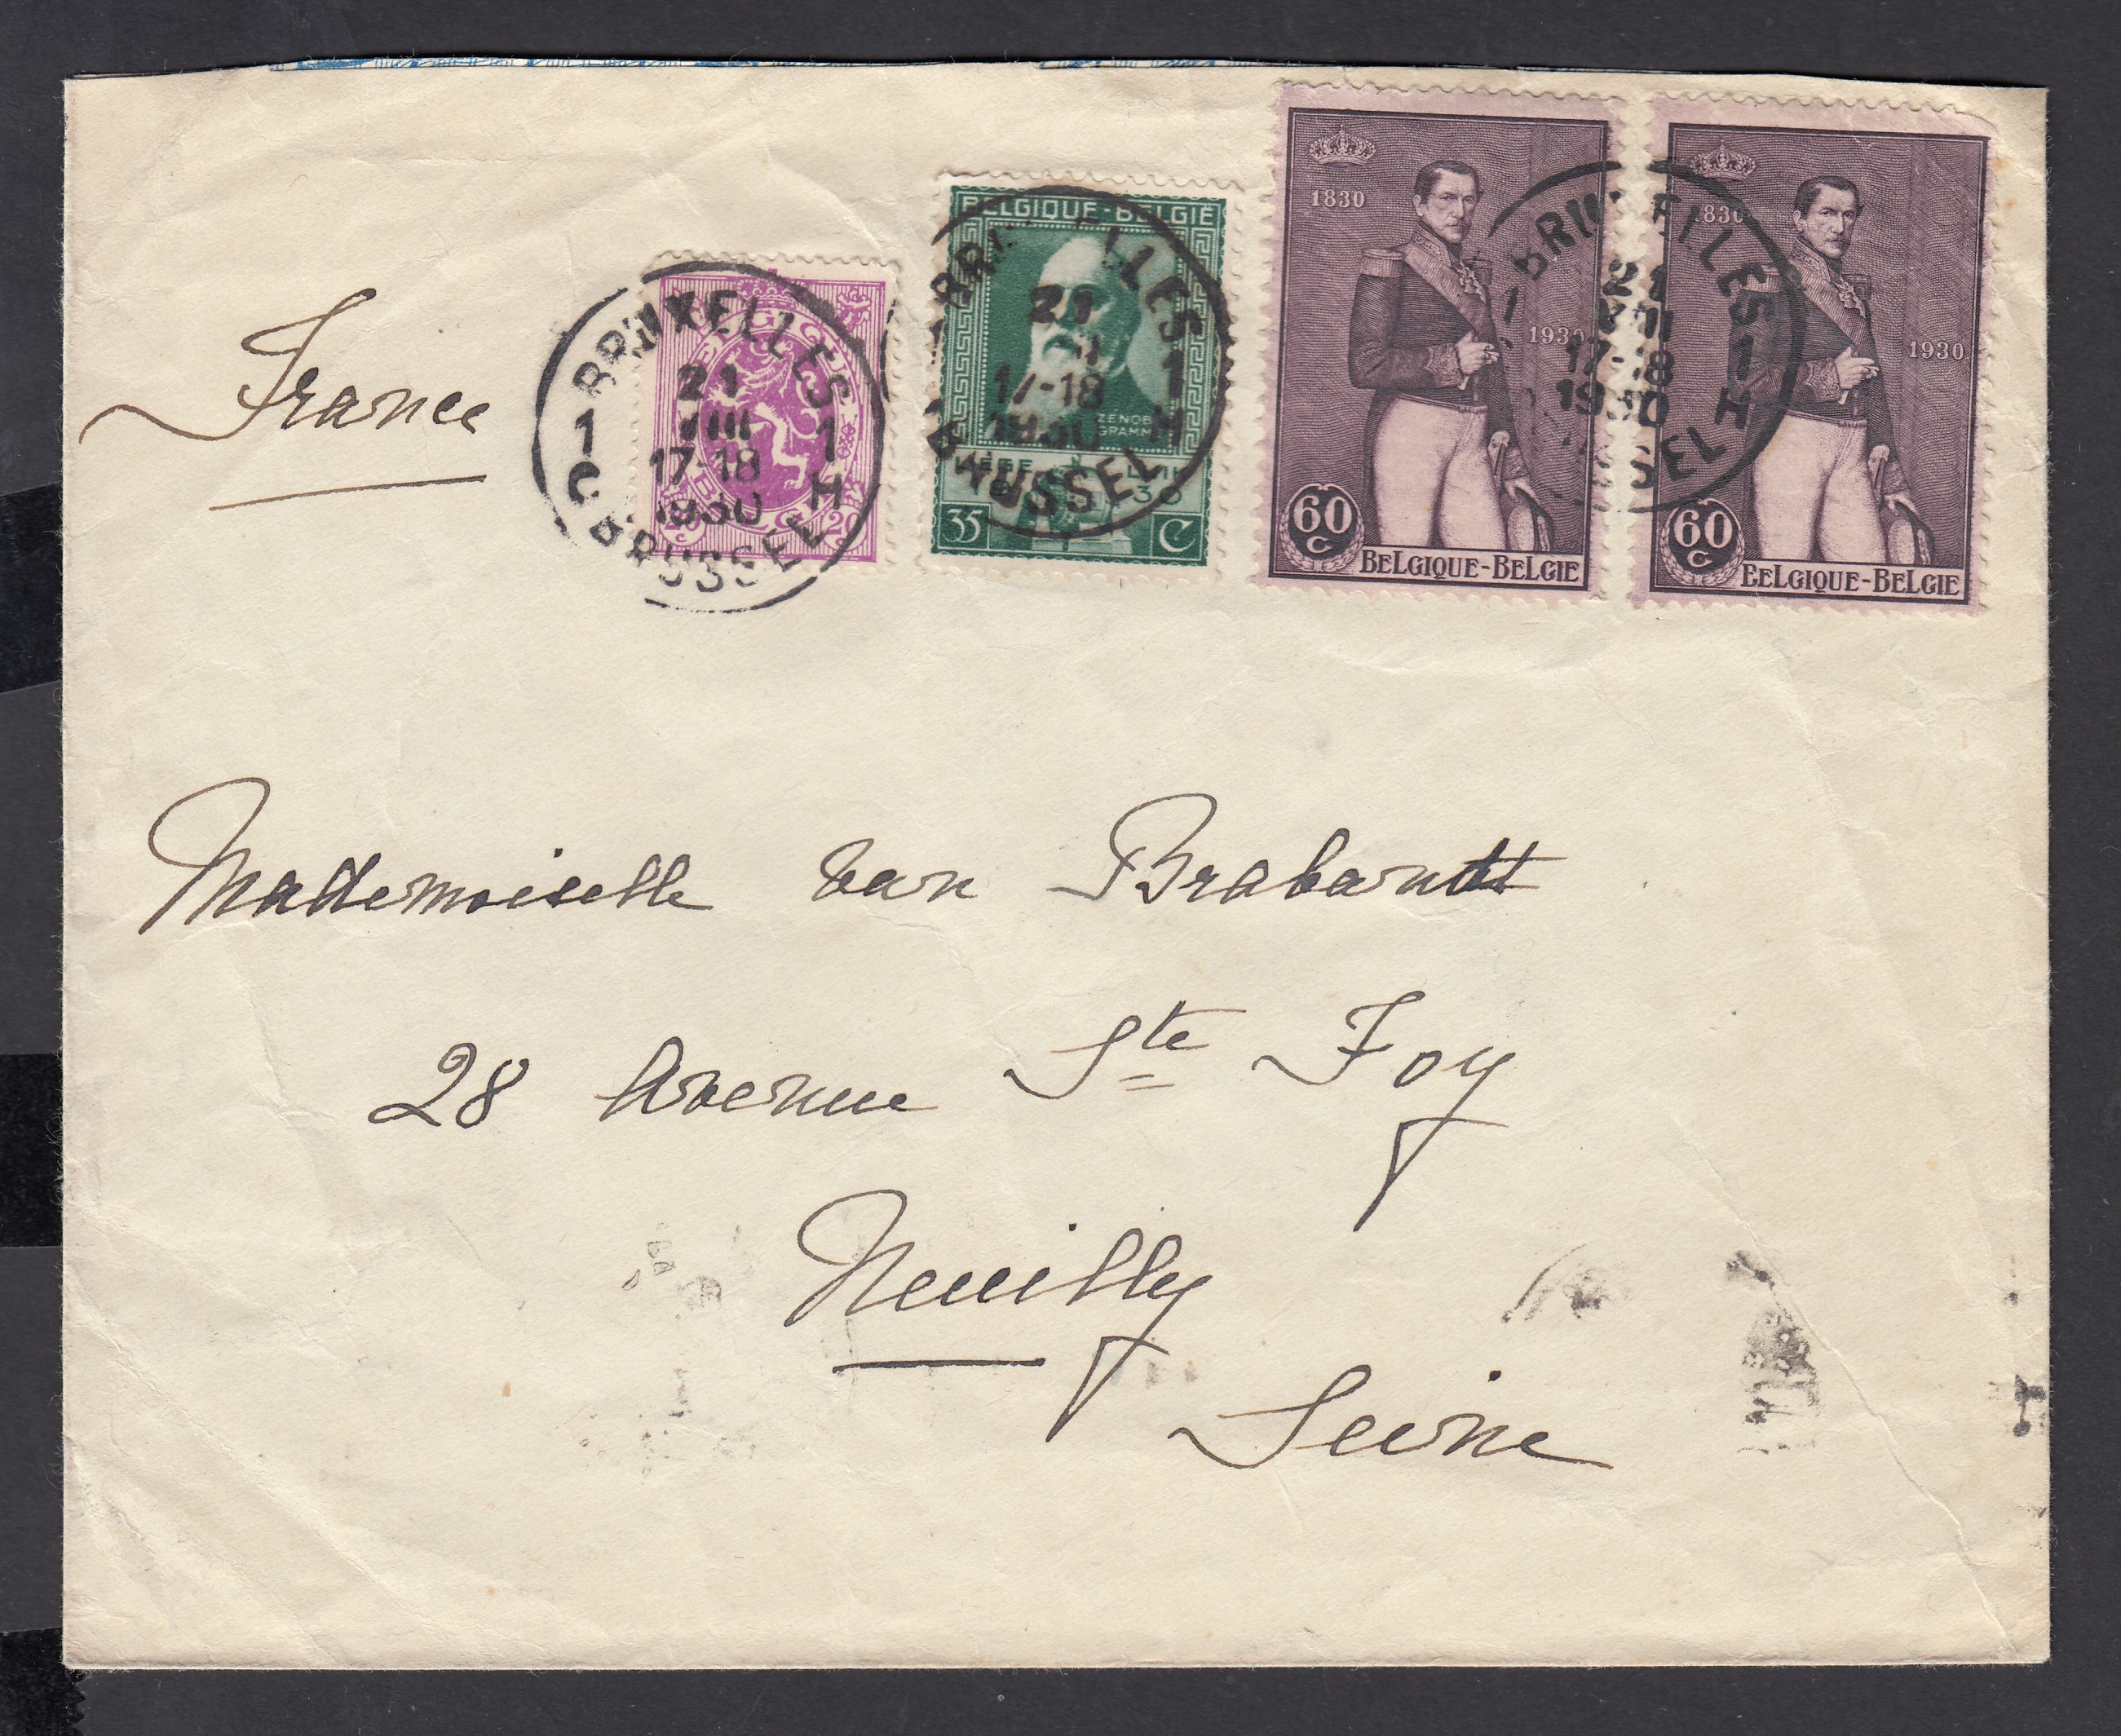 France
BRUXELLES
1 21 1
VIII
17-18
C 1930 H
BRUSSEL
BELGIQUE
BELGIË
20 c 20 c
BELGIQUE-BELGIË
BRUXELLES
21
17-18 1
1930 H
BRUSSEL
ZÉNOBE
GRAMME
35 C
1830
1930
60
C
BELGIQUE-BELGIE
BRUXELLES
21
VIII
17-18 1
1930 H
BRUSSEL
1830
1930
60
C
BELGIQUE-BELGIE
Mademoiselle van Brabandt
28 Avenue Ste Foy
Neuilly
Seine